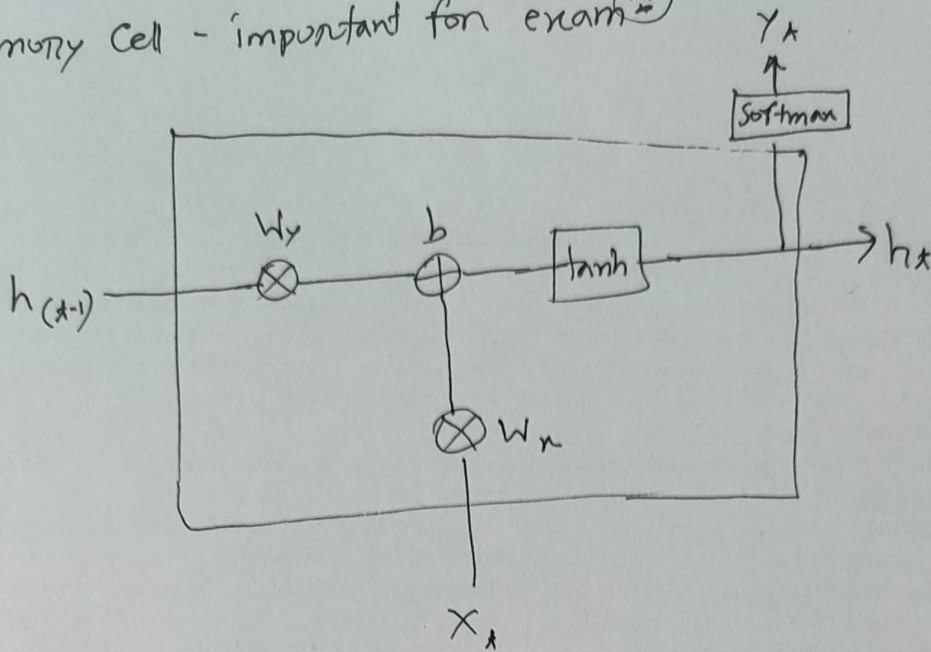 mory Cell - important for exam
Yt
Softmax
Wy
b
tanh
ht
h(t-1)
Wx
Xt